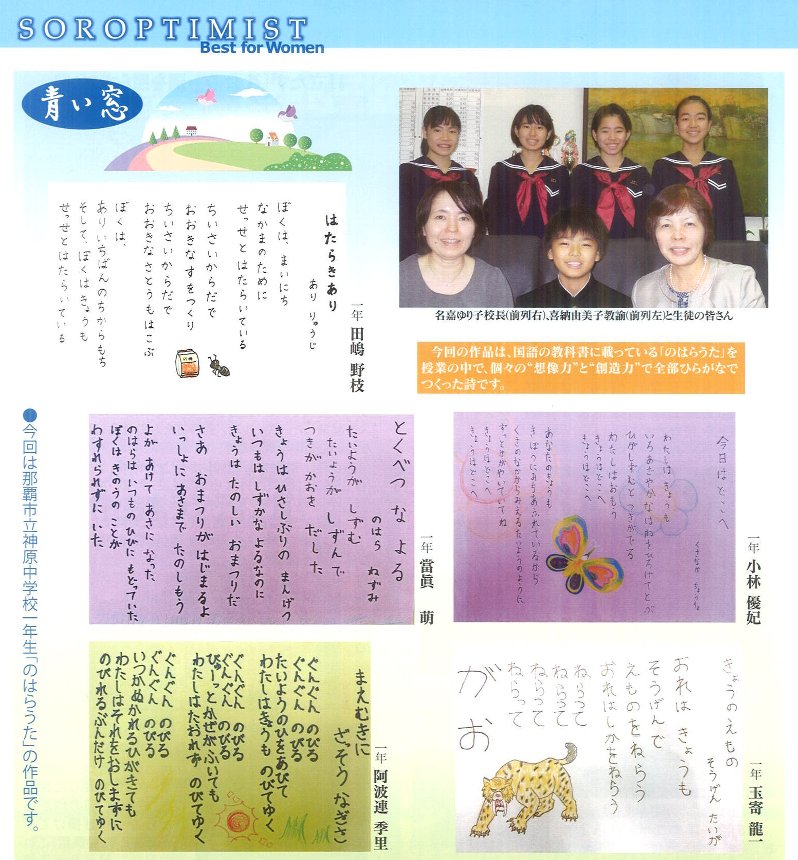 SOROPTIMIST
Best for Women
青い窓
はたらきあり
あり りゅうじ
一年 田嶋 野枝
ぼくは、まいにち
なかまのために
せっせとはたらいている
ちいさいからだで
おおきなすをつくり
ちいさいからだで
おおきなさとうもはこぶ
ぼくは、
ありいちばんのちからもち
そして、ぼくはきょうも
せっせとはたらいている
名嘉ゆり子校長(前列右)、喜納由美子教諭(前列左)と生徒の皆さん
今回の作品は、国語の教科書に載っている「のはらうた」を
授業の中で、個々の“想像力”と“創造力”で全部ひらがなで
つくった詩です。
●今回は那覇市立神原中学校一年生「のはらうた」の作品です。
とくべつ な よる
のはら ねずみ
一年 當眞 萌
たいようが しずむ
たいようが しずんで
つきが かおを だした
きょうは ひさしぶりの まんげつ
いつもは しずかな よるなのに
きょうは たのしい おまつりだ
さあ おまつりが はじまるよ
いっしょに あさまで たのしもう
よが あけて あさに なった
のはらは いつもの ひびに もどっていた
ぼくは きのうの ことが
わすれられずに いた
今日はどこへ
くさなか ちょうこ
一年 小林 優妃
わたしは きょうも
いろあざやかなはねをひろげてとぶ
ひがしずむとつきがでる
わたしはおもう
きょうはどこへ
きょうはどこへ
あなたのもきょうも
きぼうにみちあふれているから
くさのなかからみえるたいようのように
ずっとかがやいていてね
きょうはどこへ
きょうはどこへ
まえむきに
ざっそう なぎさ
一年 阿波連 季里
ぐんぐん のびる
ぐんぐん のびる
たいようのひをあびて
わたしはきょうも のびてゆく
ぐんぐん のびる
ぐんぐん のびる
びゅーっとかぜがふいても
わたしはたおれず のびてゆく
ぐんぐん のびる
ぐんぐん のびる
いつかぬかれるひがきても
わたしはそれをおしまずに
のびれるぶんだけ のびてゆく
きょうのえもの
そうげん たいが
一年 玉寄 龍一
おれは きょうも
そうげんで
えものをねらう
おれはしかをねらう
ねらって
ねらって
ねらって
ねらって
がお